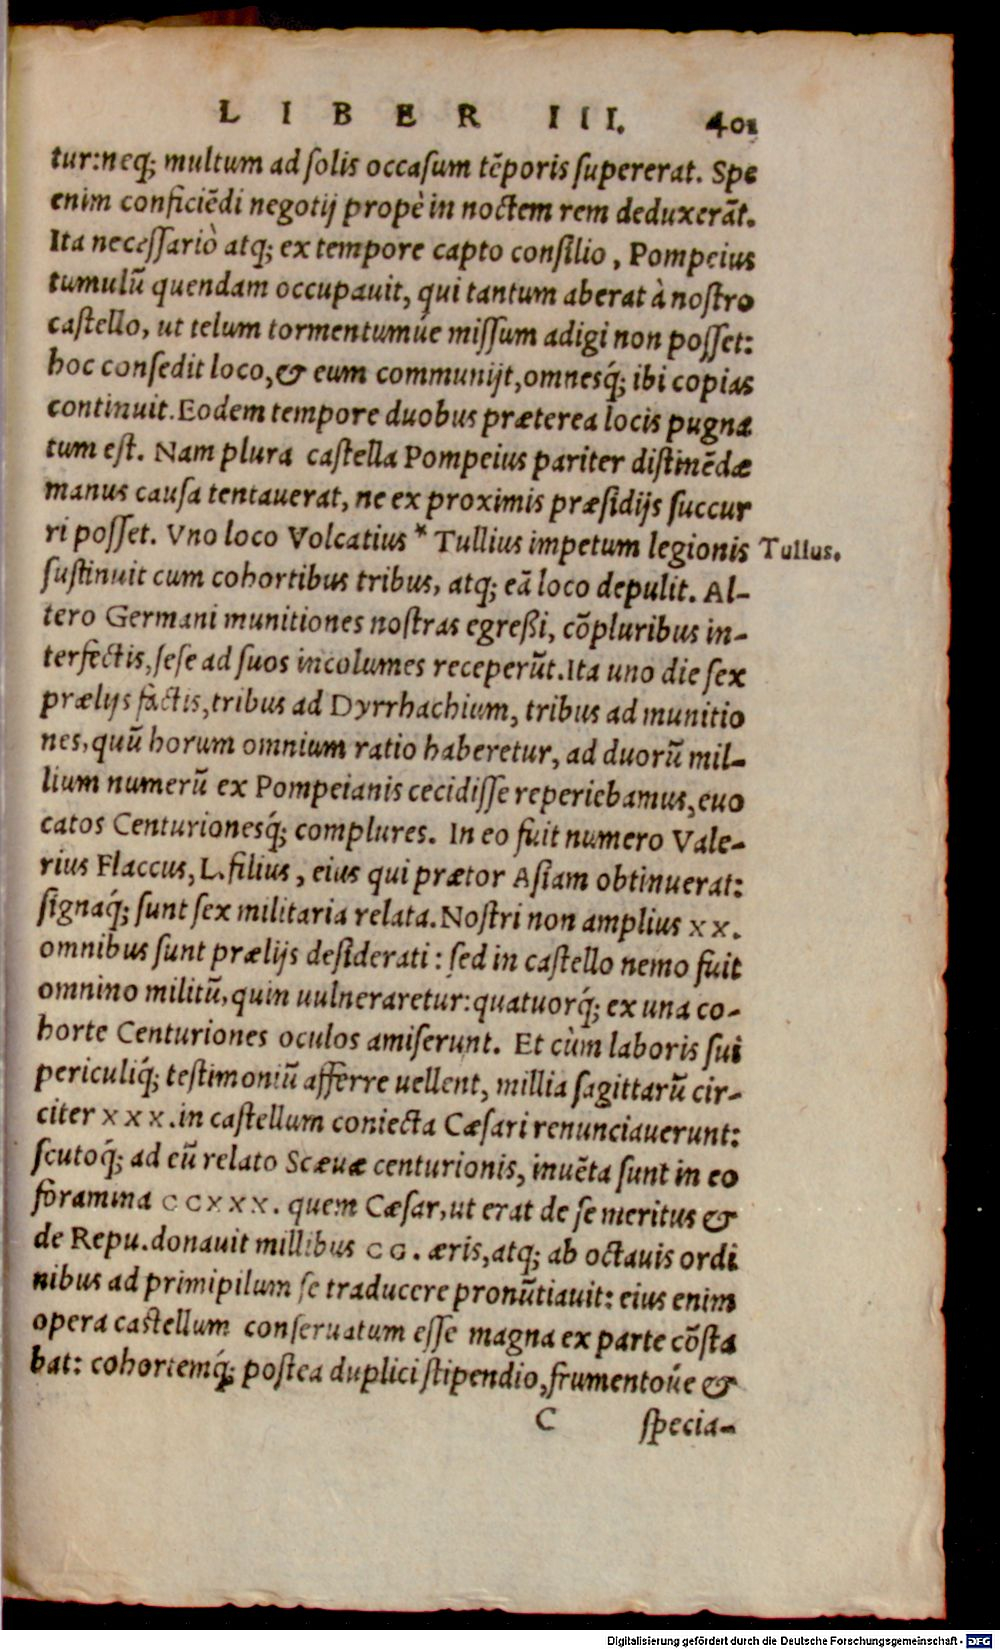 LIBER III. 401
tur:neq; multum ad ſolis occaſum tẽporis ſupererat. Spe
enim conficiẽdi negotij propè in noctem rem deduxerãt.
Ita neceſſariò atq; ex tempore capto conſilio, Pompeius
tumulũ quendam occupauit, qui tantum aberat à noſtro
caſtello, ut telum tormentumúe miſſum adigi non poſſet:
hoc conſedit loco, & eum communijt, omnesq́; ibi copias
continuit. Eodem tempore duobus præterea locis pugna
tum eſt. Nam plura caſtella Pompeius pariter diſtinẽdæ
manus cauſa tentauerat, ne ex proximis præſidijs ſuccur
ri poſſet. Vno loco Volcatius * Tullius impetum legionis Tullus.
ſuſtinuit cum cohortibus tribus, atq; eã loco depulit. Al-
tero Germani munitiones noſtras egreßi, cõpluribus in-
terfectis, ſeſe ad ſuos incolumes receperũt. Ita uno die ſex
prælijs factis, tribus ad Dyrrhachium, tribus ad munitio
nes, quũ horum omnium ratio haberetur, ad duorũ mil-
lium numerũ ex Pompeianis cecidiſſe reperiebamus, euo
catos Centurionesq́; complures. In eo fuit numero Vale-
rius Flaccus, L. filius, eius qui prætor Aſiam obtinuerat:
ſignaq́; ſunt ſex militaria relata. Noſtri non amplius XX.
omnibus ſunt prælijs deſiderati: ſed in caſtello nemo fuit
omnino militũ, quin uulneraretur: quatuorq́; ex una co-
horte Centuriones oculos amiſerunt. Et cùm laboris ſui
periculiq́; teſtimoniũ afferre uellent, millia ſagittarũ cir-
citer XXX. in caſtellum coniecta Cæſari renunciauerunt:
ſcutoq́; ad eũ relato Scæuæ centurionis, inuẽta ſunt in eo
foramina CCXXX. quem Cæſar, ut erat de ſe meritus &
de Repu. donauit millibus CC. æris, atq; ab octauis ordi
nibus ad primipilum ſe traducere pronũtiauit: eius enim
opera caſtellum conſeruatum eſſe magna ex parte cõſta
bat: cohortemq́; poſtea duplici ſtipendio, frumentoúe &
C ſpecia-
Digitalisierung gefördert durch die Deutsche Forschungsgemeinschaft - DFG